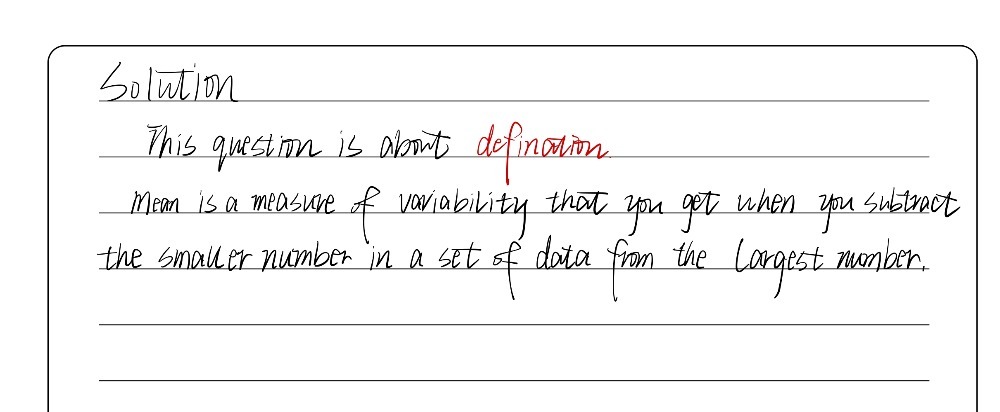 Solution
This question is about defination.
Mean is a measure of variability that you get when you subtract
the smaller number in a set of data from the largest number.